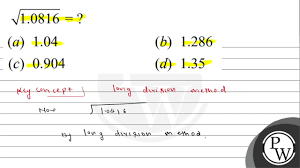 √1.0816 = ?
(a) 1.04 (b) 1.286
(c) 0.904 (d) 1.35
Key concept | long division method
Now √1.0816
By long division method.
PW